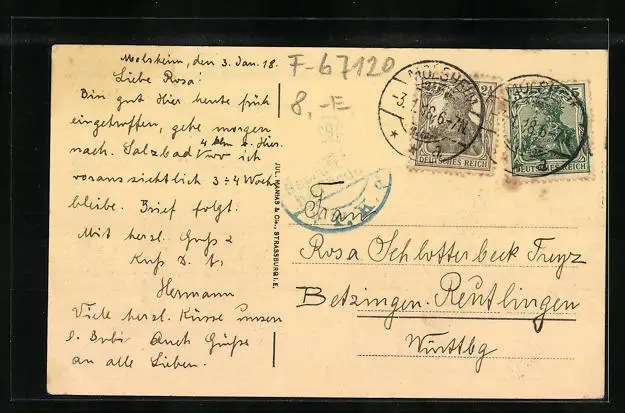 Molsheim, den 3. Jan. 18.
Liebe Rosa!
Bin gut hier heute früh
eingetroffen, gehe morgen
4 klm v. hier.
nach Salzbad wo ich
voraussichtlich 3-4 Woch
bleibe. Brief folgt.
Mit herzl. Gruß &
Kuß D. l.
Hermann
Viele herzl. Küsse unsern
l. Bubi Auch Grüße
an alle Lieben.
F-67120
8,-E
JUL. MANIAS & Cie., STRASSBURG i. E.
MOLSHEIM
3.1.18.6-7N.
a
2½
DEUTSCHES REICH
MOLSHEIM
18.6-7N.
a
5
DEUTSCHES REICH
Frau
Rosa Schlotterbeck
Betzingen-Reutlingen
Württbg